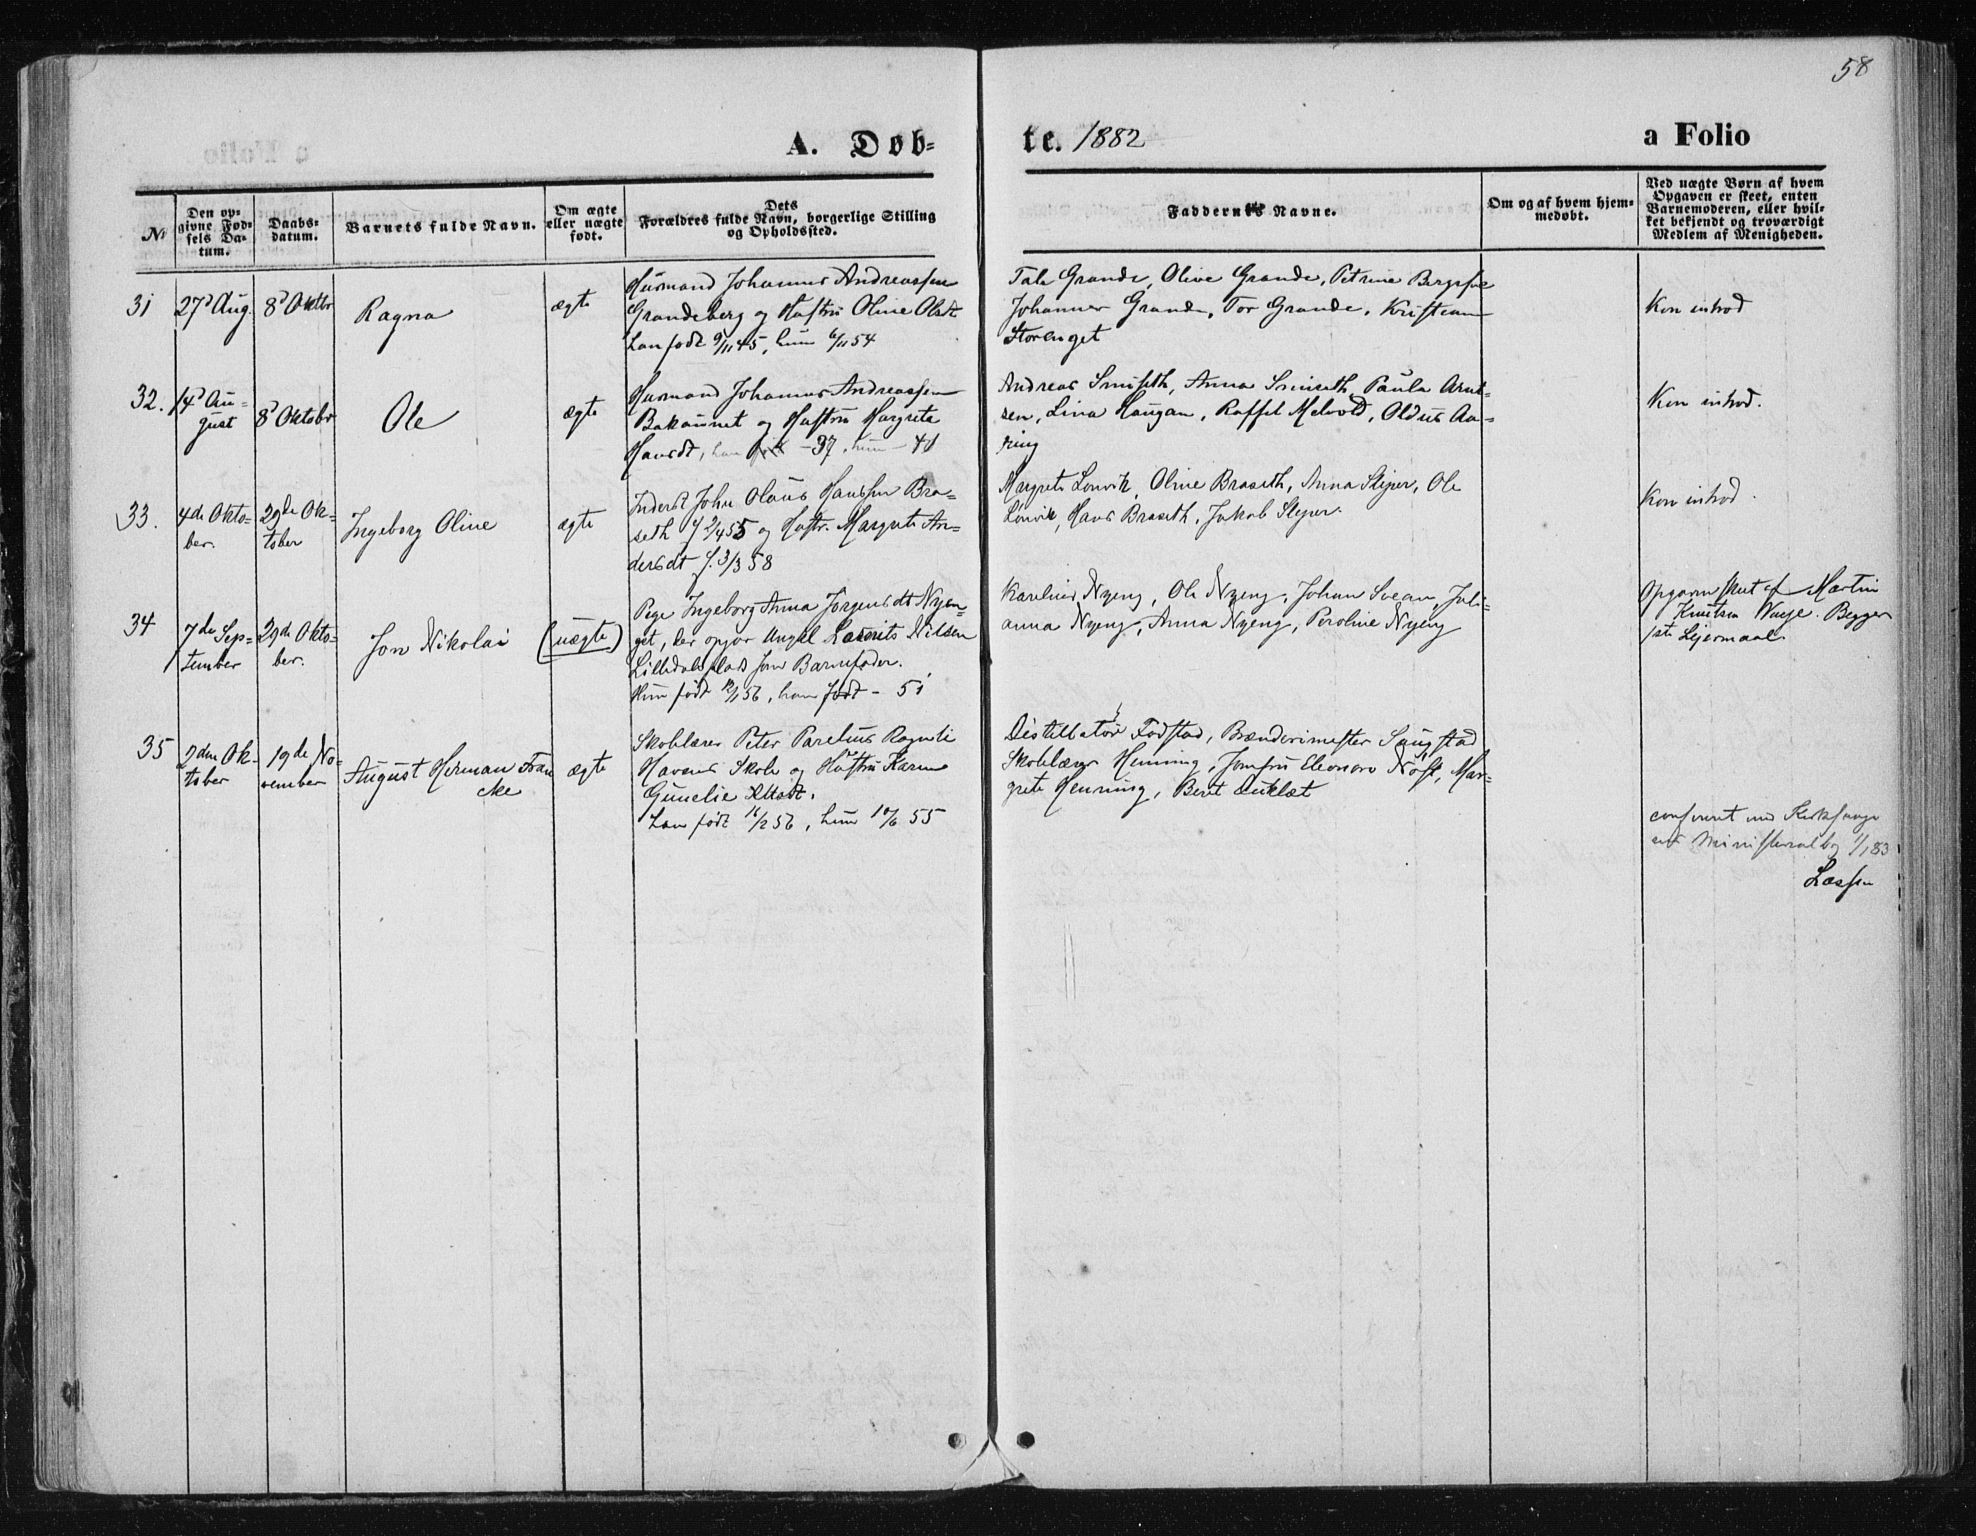 58
A. Døb-
te. 1882
a Folio
№
Den op-
givne Fød-
sels Da-
tum.
Daabs-
datum.
Barnets fulde Navn.
Om ægte
eller uægte
født.
Dets
Forældres fulde Navn, borgerlige Stilling
og Opholdssted.
Faddernes Navne.
Om og af hvem hjem-
medøbt.
Ved uægte Børn af hvem
Opgaven er skeet, enten
Barnemoderen, eller hvil-
ket bekjendt og troværdigt
Medlem af Menigheden.
31
27d Aug.
8d Oktbr
Ragna
ægte
Husmand Johannes Andreassen
Grandeberg og Hustru Oline Olsdt
han født 9/11 45, hun 6/11 54
Grande, Olive Grande, Petrine
Johannes Grande, Tor Grande, Kristian
Storenget
Kon introd
32.
14d Au-
gust
8d Oktobr
Ole
ægte
Husmand Johannes Andreassen
Bakaunet og Hustru Margrete
Hansdt, han født -37, hun - 41
Andreas Smiseth, Anna Smiseth, Paula Arnt-
sen, Lina Haugan, Melvold, Aa-
ring
Kon introd.
33.
4de Okto-
ber.
29de Ok-
tober
Ingeborg Oline
ægte
Inderst John Olaus Hanssen Bra-
seth f 2/4 55 og Hustr. Margrete An-
dersdt f. 3/3 58
Margrete Lonvik, Oline Braseth, Anna Slejper, Ole
Lonvik, Hans Braseth, Jakob Slejper.
Kon introd.
34
7de Sep-
tember
29de Okto-
ber.
Jon Nikolai
(uægte)
Pige Ingeborg Anna Jørgensdt Nyen-
get, der opgav Ungkl Laurits Nilsen
Lilledalsplads som Barnefader.
Hun født 12/1 56, han født - 51
Karelius Nyeng, Ole Nyeng, Johan Svean, Juli-
anna Nyeng, Anna Nyeng, Peroline Nyeng
Opgaven skeet af Martin
Knutsen. Begges
1ste Lejermaal
35
2den Ok-
tober
19de No-
vember
August Herman Fran
cke
ægte
Skolelærer Peter Parelius
Havens Skole og Hustru Karen
Gunelie
han født 16/2 56, hun 10/6 55
Distillatør Fodstad, Brænderimester Saugstad
Skolelærer Henning, Jomfru Eleonore Høst, Mar-
grete Henning, Beret Auklæt
confereret med Kirkesanger
ens Ministerialbog 1/1 83
Læssøe